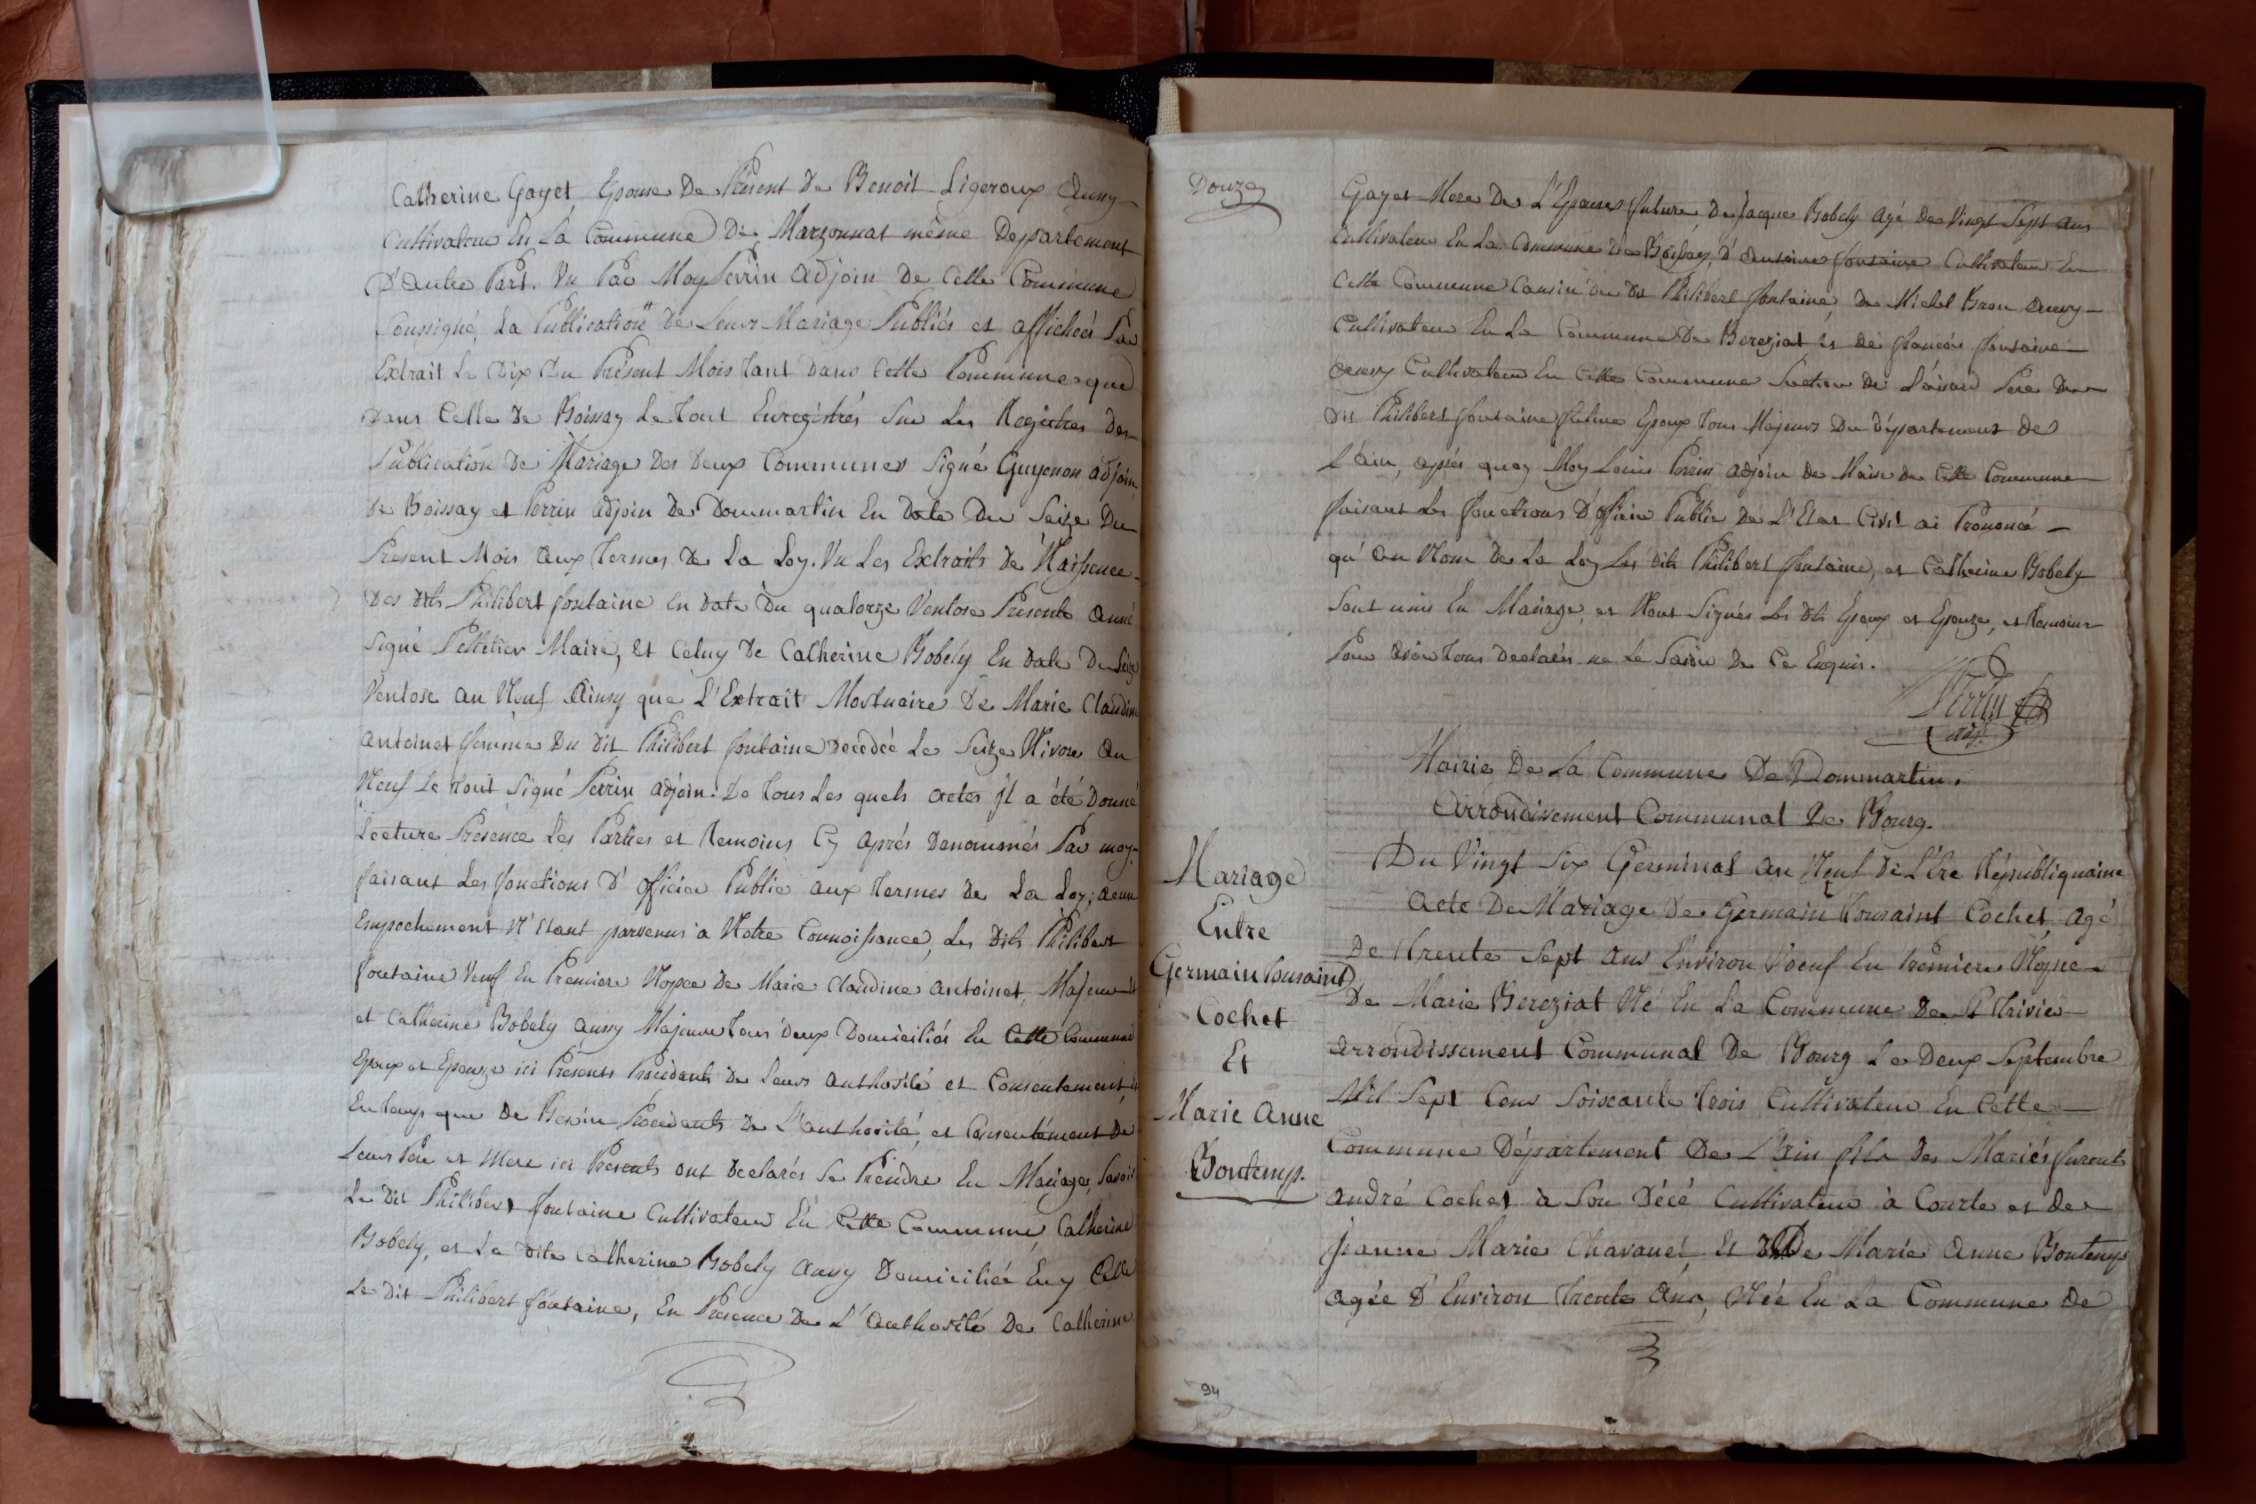 Catherine Gayet Epouse De Present De Benoit Ligeroux Aussy
Cultivateur En La Commune De Marsonnas même Departement
D'Autre Part. Vu Par Moy Perrin Adjoin De Cette Commune
Soussigné, La Publication De Leurs Mariage Publiés et affichées Par
Extrait Le Dix Du Présent Mois tant Dans Cette Commune que
Dans Celle De Boissey Le Tout Enregistrés Sur Les Registres Des
Publication De Mariage Des Deux Communes Signé Guyenon adjoin
de Boissay et Perrin adjoin De Dommartin En Date Du Seize Du
Present Mois aux Termes De La Loy. Vu Les Extraits De Naissence
Des dits Philibert fontaine En date Du quatorze Ventose Presente Année
Signé Pelletier Maire, Et Celuy De Catherine Bobely En Date Du Seize
Ventose an Neuf Ainsy que L'Extrait Mortuaire De Marie Claudine
Antoinet femme Du Dit Philibert fontaine Decedée Le Seize Nivose an
Neuf Le tout Signé Perrin Adjoin. De Tous Les quels Actes Jl a été Donné
Lecture Presence Les Parties et Temoins Cy Aprés Denommés Par moy
faisant Les fonctions D'officier Public aux Termes De La Loy; aucun
Empechement N'Etant parvenus a Notre Connoissance, Les Dits Philibert
fontaine Veuf En Premiere Nopce De Marie Claudine Antoinet, Majeur
et Catherine Bobely Aussy Majeure Tous Deux Domiciliés En Cette Commune
Epoux et Epouze ici Présents Procedants De Leurs Authorité et Consentement,
En temps que De Besoin Procedants De L'authorité, et Consentement De
Leurs Pere et Mere ici Presents ont Declarés Se Prendre En Mariage, Savoir
Le Dit Philibert fontaine Cultivateur En Cette Commune, Catherine
Bobely, et La Dite Catherine Bobely Aussy Domiciliée En Cette
Le Dit Philibert fontaine, En Presence De L'Authorité De Catherine
Douze
Gayet Mere De L'Epouse future, De Jacque Bobely Agé De Vingt Sept Ans
Cultivateur En La Commune De Boissey, D'Antoine fontaine Cultivateur En
Cette Commune Cousin du dit Philibert fontaine, De Michel Bron Aussy
Cultivateur En La Commune De Bereziat et De François fontaine
Aussy Cultivateur En Cette Commune Section de Pere Du
Dit Philibert fontaine future Epoux Tous Majeurs Du Département De
L'Ain, après quoy Moy Louis Perrin adjoin De Maire De Cette Commune
faisant Les fonctions D'officier Public De L'Etat Civil ai Prononcé
qu'au Nom De La Loy Les Dits Philibert fontaine, et Catherine Bobely
Sont unis En Mariage, et Nont Signés Les Dits Epoux et Epouze, et Temoins
Pour Avoir Tous Declarés ne Le Savoir De Ce Enquis.
Perrin
adj.
Mairie De La Commune De Dommartin.
Arrondissement Communal De Bourg.
Mariage
Entre
Germain Tousaint
Cochet
Et
Marie Anne
Bontemps.
Du Vingt Six Germinal an Neuf De L'Ere Républiquaine
Acte De Mariage De Germain Tousaint Cochet Agé
De Trente Sept Ans Environ Voeuf En Premiere Nopce
De Marie Bereziat Né En La Commune De St Trivier
Arrondissement Communal De Bourg Le Deux Septembre
Mil Sept Cens Soixante Trois Cultivateur En Cette
Commune Département De L'Ain fils Des Mariés furent
André Cochet à Son Décé Cultivateur à Courte et De
Jeanne Marie Chavanel, Et De Marie Anne Bontemps
agée D'Environ Trente Ans, Née En La Commune De
94